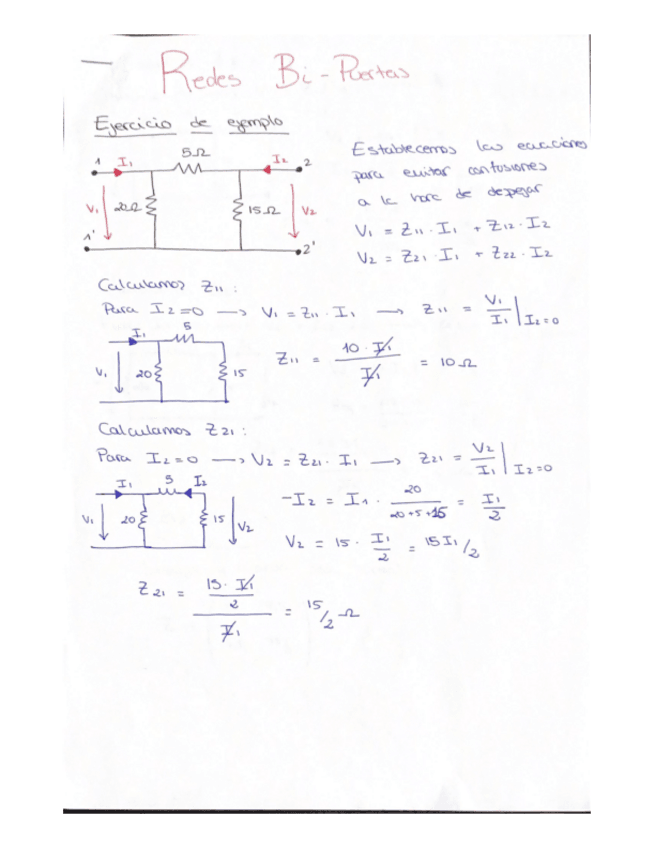 Redes Bi-Puertas
Ejercicio de ejemplo
1 I1 5Ω I2 2
V1 20Ω 15Ω V2
1' 2'
Establecemos las ecuaciones
para evitar confusiones
a la hora de despejar
V1 = Z11 · I1 + Z12 · I2
V2 = Z21 · I1 + Z22 · I2
Calculamos Z11 :
Para I2=0 → V1 = Z11 · I1 → Z11 = V1/I1 | I2=0
I1 5
V1 20 15
Z11 = 10 · I1 / I1 = 10Ω
Calculamos Z21 :
Para I2=0 → V2 = Z21 · I1 → Z21 = V2/I1 | I2=0
I1 5 I2
V1 20 15 V2
-I2 = I1 · 20/20+5+15 = I1/2
V2 = 15 · I1/2 = 15I1/2
Z21 = 15 · I1/2 / I1 = 15/2 Ω